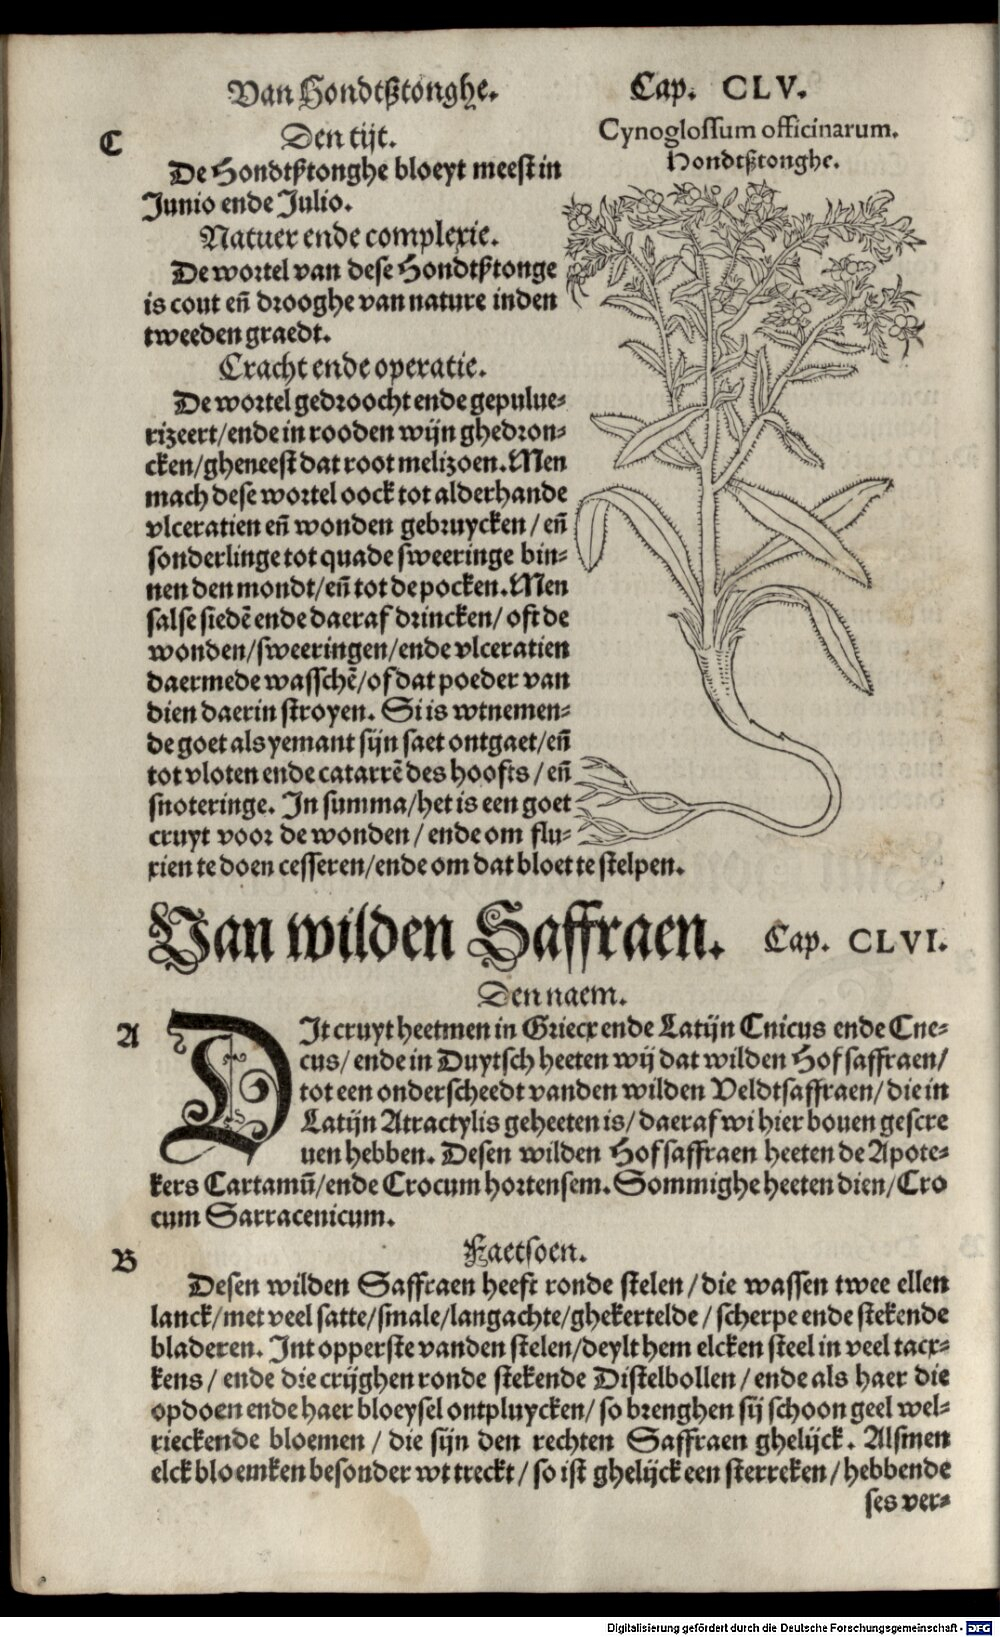 Van Hondtßtonghe.
Cap. CLV.
C
Den tijt.
De Hondtßtonghe bloeyt meest in
Junio ende Julio.
Natuer ende complexie.
De wortel van dese Hondtßtonge
is cout eñ drooghe van nature in den
tweeden graedt.
Cracht ende operatie.
De wortel gedroocht ende gepulue-
rizeert/ende in rooden wijn ghedron-
cken/gheneest dat root melizoen. Men
mach dese wortel oock tot alderhande
vlceratien eñ wonden gebruycken/eñ
sonderlinge tot quade sweeringe bin-
nen den mondt/eñ tot de pocken. Men
salse siedē ende daeraf drincken/oft de
wonden/sweeringen/ende vlceratien
daermede wasschē/of dat poeder van
dien daerin stroyen. Si is wtnemen-
de goet als yemant sijn saet ontgaet/eñ
tot vloten ende catarrē des hoofts/eñ
snoteringe. In summa/het is een goet
cruyt voor de wonden/ende om flu-
xien te doen cesseren/ende om dat bloet te stelpen.
Cynoglossum officinarum.
Hondtßtonghe.
Van wilden Saffraen. Cap. CLVI.
Den naem.
A
DIt cruyt heetmen in Griecx ende Latijn Cnicus ende Cne-
cus/ende in Duytsch heeten wij dat wilden Hofsaffraen/
tot een onderscheedt vanden wilden Veldtsaffraen/die in
Latijn Atractylis geheeten is/daeraf wi hier bouen gescre
uen hebben. Desen wilden Hofsaffraen heeten de Apote-
kers Cartamū/ende Crocum hortensem. Sommighe heeten dien/Cro
cum Sarracenicum.
Faetsoen.
B
Desen wilden Saffraen heeft ronde stelen/die wassen twee ellen
lanck/met veel satte/smale/langachte/ghekertelde/scherpe ende stekende
bladeren. Int opperste vanden stelen/deylt hem elcken steel in veel tacx-
kens/ende die crijghen ronde stekende Distelbollen/ende als haer die
opdoen ende haer bloeysel ontpluycken/so brenghen sij schoon geel wel-
rieckende bloemen/die sijn den rechten Saffraen ghelijck. Alsmen
elck bloemken besonder wttreckt/so ist ghelijck een sterreken/hebbende
ses ver-
Digitalisierung gefördert durch die Deutsche Forschungsgemeinschaft - DFG